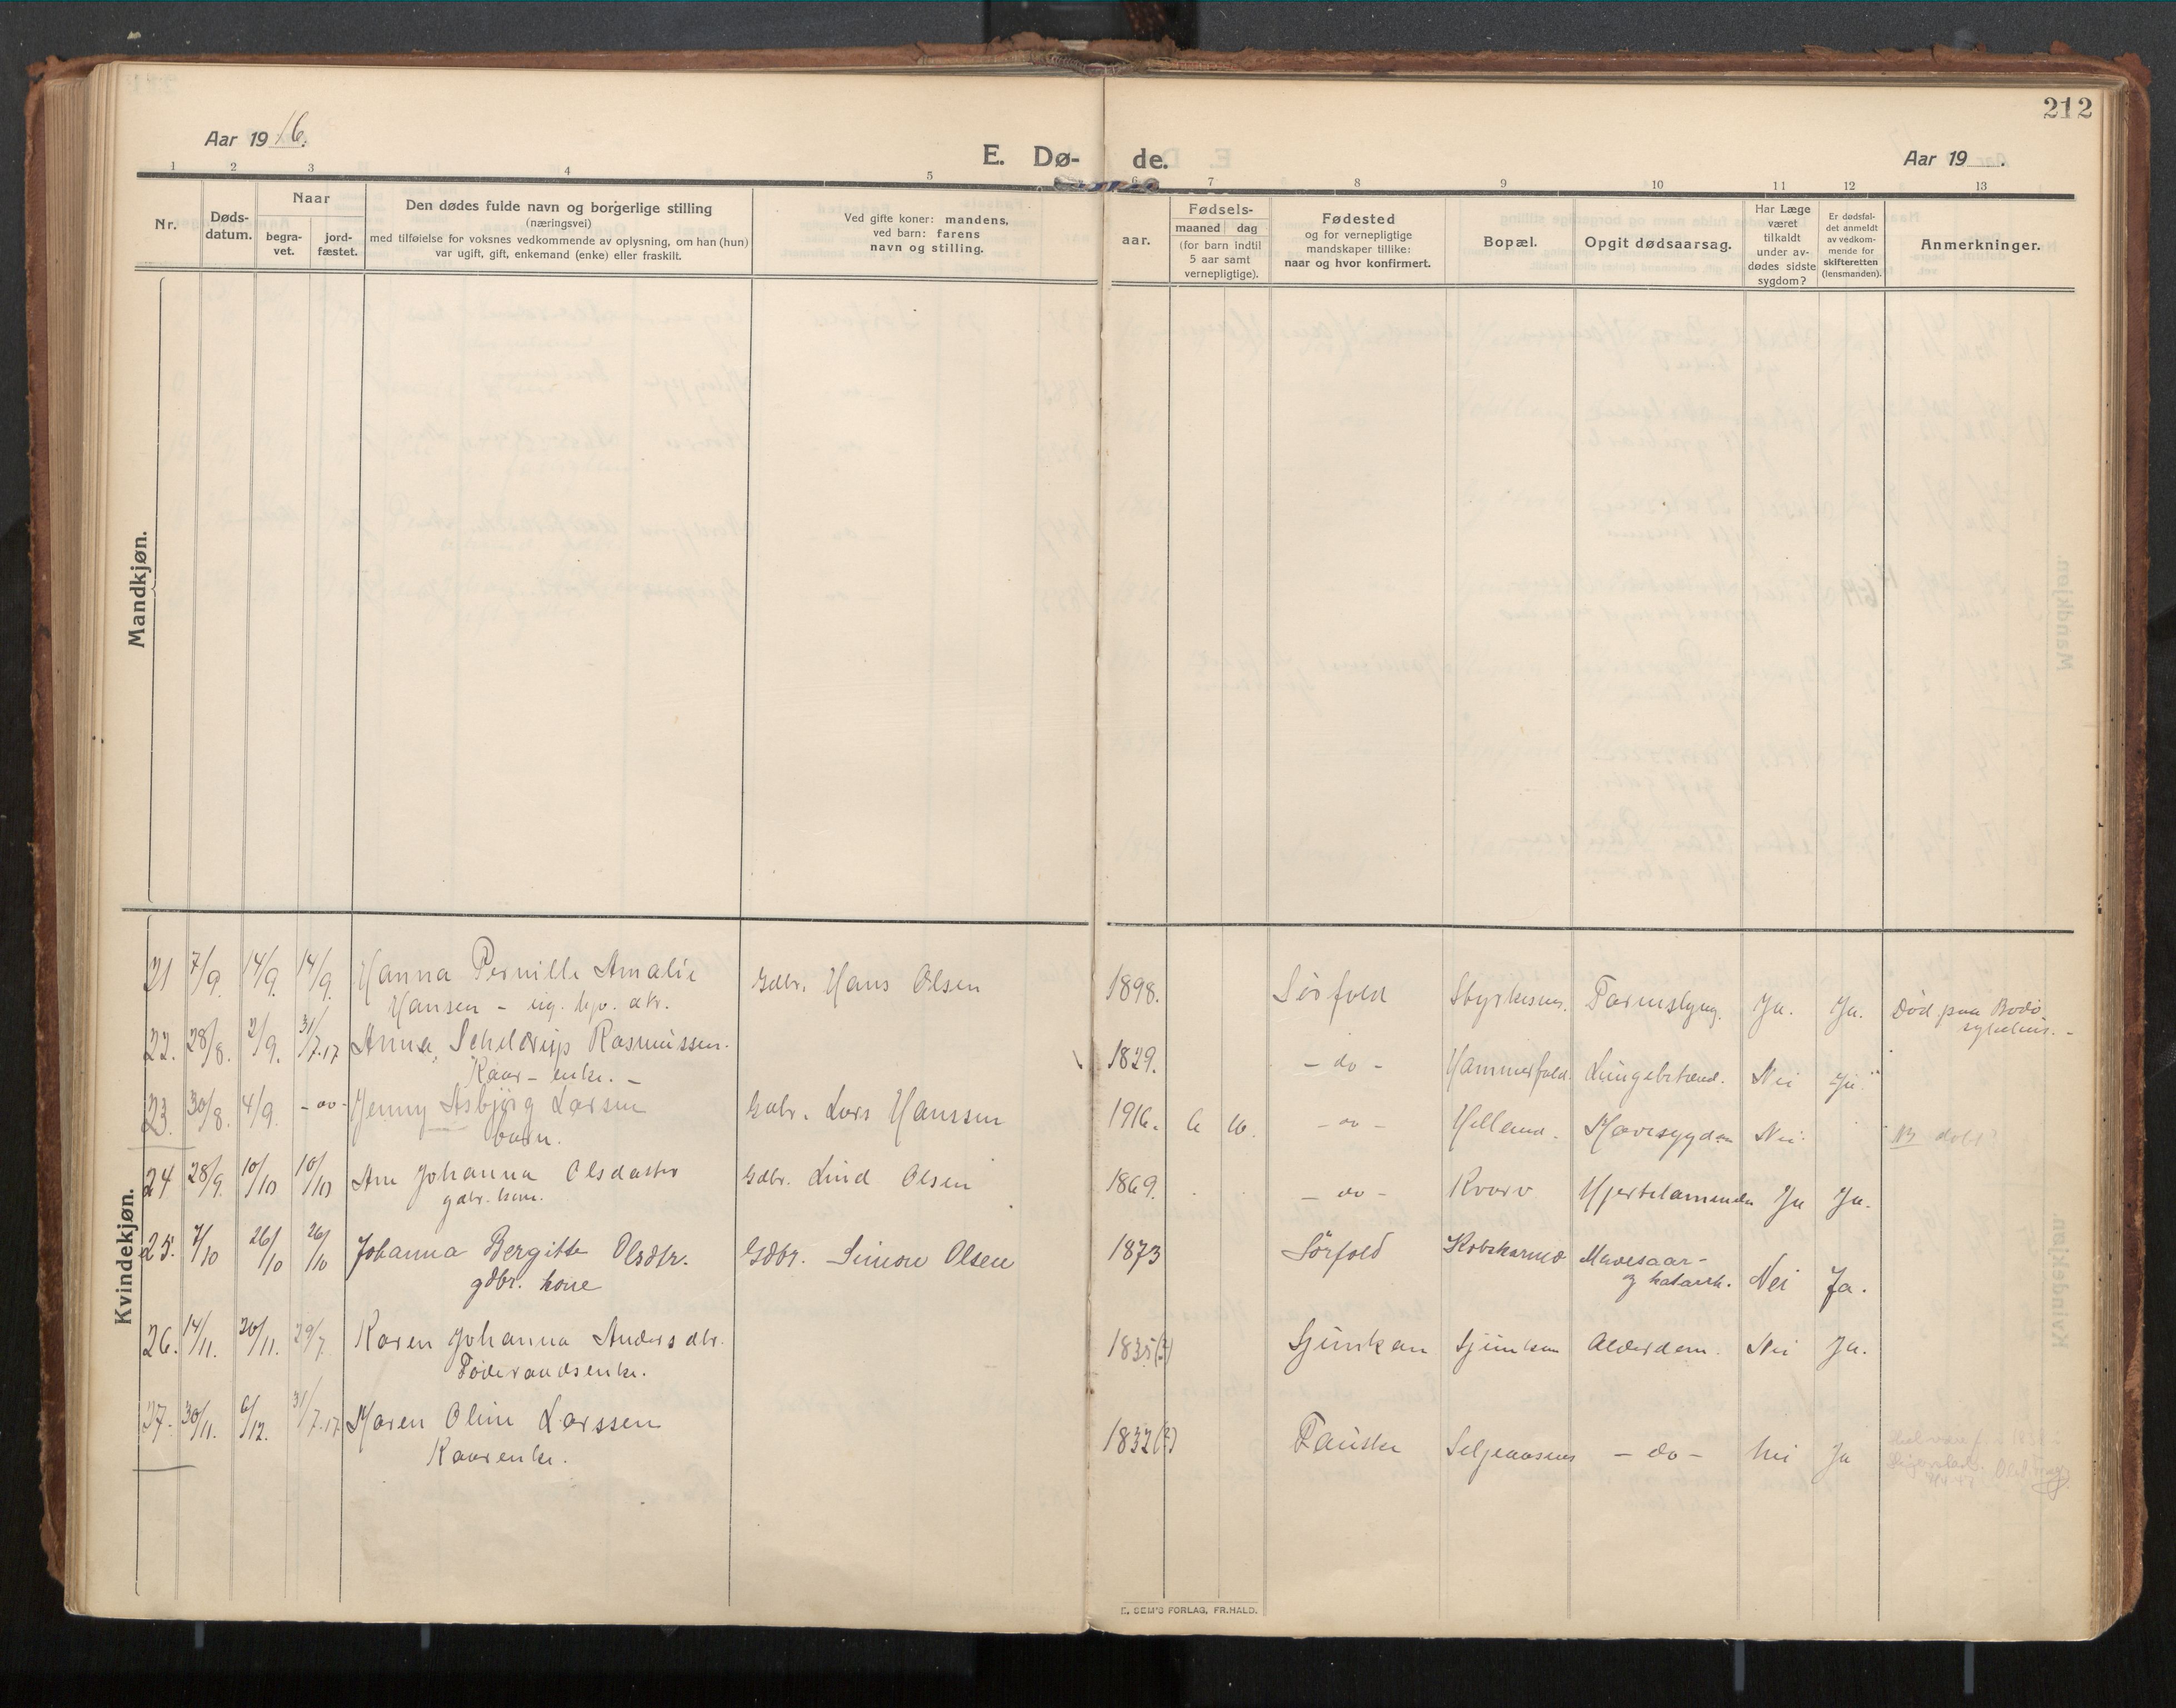 212
Aar 1916.
E. Dø-
de.
Aar 19 .
1 2 3 4 5 6 7 8 9 10 11 12 13
Nr.
Døds-
datum.
Naar
begra-
vet.
jord-
fæstet.
Den dødes fulde navn og borgerlige stilling
(næringsvei)
med tilføielse for voksnes vedkommende av oplysning, om han (hun)
var ugift, gift, enkemand (enke) eller fraskilt.
Ved gifte koner: mandens,
ved barn: farens
navn og stilling.
aar.
Fødsels-
maaned dag
(for barn indtil
5 aar samt
vernepligtige).
Fødested
og for vernepligtige
mandskaper tillike:
naar og hvor konfirmert.
Bopæl.
Opgit dødsaarsag.
Har Læge
været
tilkaldt
under av-
dødes sidste
sygdom?
Er dødsfal-
det anmeldt
av vedkom-
mende for
skifteretten
(lensmanden).
Anmerkninger.
Mandkjøn.
Kvindekjøn.
21 7/9. 14/9. 14/9. Hanna Pernille Amalie Gdbr. Hans Olsen 1898. Sörfold Styrkesnes. Ja. Ja. Død paa Bodö
Hansen - ug.
22. 28/8. 2/9. 31/7.17 Anna Scheldrup Rasmussen. 1829. - do - Hammerfald. Lungebetænd. Nei Ja.
Kaar- enke. -
23. 30/8. 4/9. - do - Jenny Asbjørg Larsen Gdbr. Lars Hanssen 1916. 6 16. - do - Helland. Mavesygdom Nei.
barn.
24 28/9. 10/10 10/10 Ane Johanna Olsdatter Gdbr. Lind Olsen 1869. - do - Kvarv Hjertelammelse Ja Ja.
gdbr. kone.
25. 7/10 26/10 26/10 Johanna Bergitte Olsdtr. Gdbr. Simon Olsen 1873 Sörfold Kobskarmo Mavesaar-
gdbr. kone og katarrh. Nei Ja.
26. 14/11. 20/11. 29/7. Karen Johanna Andersdtr. 1835(?) Sjunkan Sjunkan Alderdom. Nei Ja.
Föderaadsenke.
27. 30/11. 6/12. 31/7.17 Maren Oline Larssen 1832(?) Fauske Seljeaasnes - do - Nei Ja
Kaarenke.
E. SEM'S FORLAG, FR.HALD.